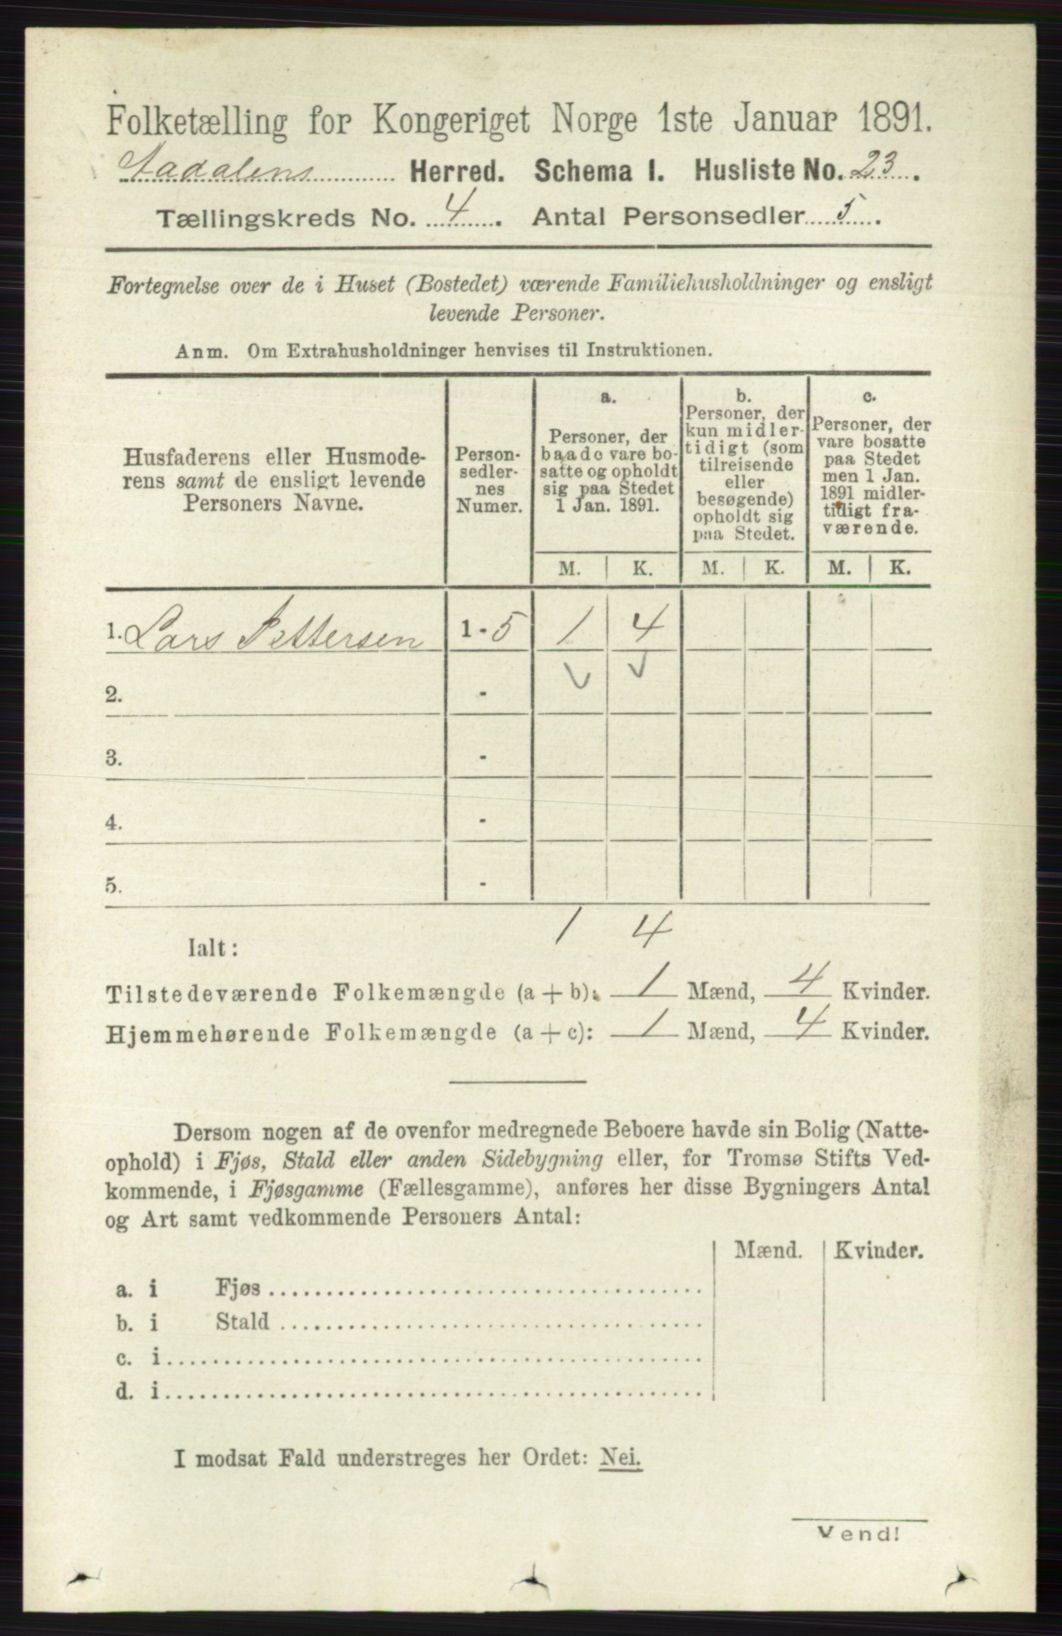 Folketælling for Kongeriget Norge 1ste Januar 1891.
Aadalens Herred. Schema I. Husliste No. 23.
Tællingskreds No. 4. Antal Personsedler 5.
Fortegnelse over de i Huset (Bostedet) værende Familiehusholdninger og ensligt
levende Personer.
Anm. Om Extrahusholdninger henvises til Instruktionen.
Husfaderens eller Husmode-
rens samt de ensligt levende
Personers Navne.
Person-
sedler-
nes
Numer.
a.
Personer, der
baade vare bo-
satte og opholdt
sig paa Stedet
1 Jan. 1891.
b.
Personer, der
kun midler-
tidigt (som
tilreisende
eller
besøgende)
opholdt sig
paa Stedet.
c.
Personer, der
vare bosatte
paa Stedet
men 1 Jan.
1891 midler-
tidigt fra-
værende.
M. K. M. K. M. K.
1. Lars Pettersen 1-5 1 4
2. -
3. -
4. -
5. -
1 4
Ialt:
Tilstedeværende Folkemængde (a + b): 1 Mænd, 4 Kvinder.
Hjemmehørende Folkemængde (a + c): 1 Mænd, 4 Kvinder.
Dersom nogen af de ovenfor medregnede Beboere havde sin Bolig (Natte-
ophold) i Fjøs, Stald eller anden Sidebygning eller, for Tromsø Stifts Ved-
kommende, i Fjøsgamme (Fællesgamme), anføres her disse Bygningers Antal
og Art samt vedkommende Personers Antal:
Mænd. Kvinder.
a. i Fjøs
b. i Stald
c. i
d. i
I modsat Fald understreges her Ordet: Nei.
Vend!